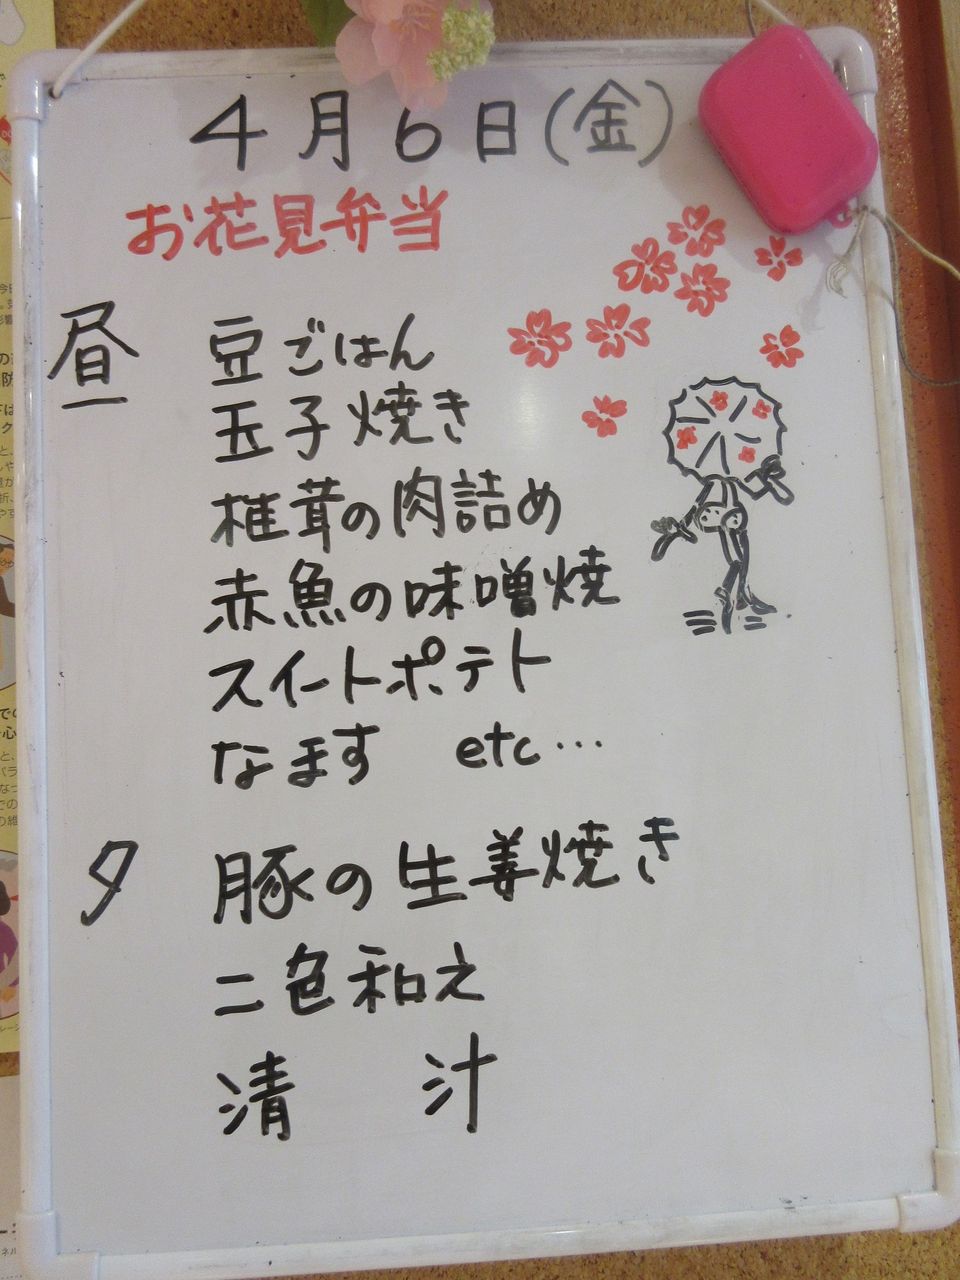 4月6日(金)
お花見弁当
昼 豆ごはん
玉子焼き
椎茸の肉詰め
赤魚の味噌焼
スイートポテト
なます etc…
夕 豚の生姜焼き
二色和え
清 汁